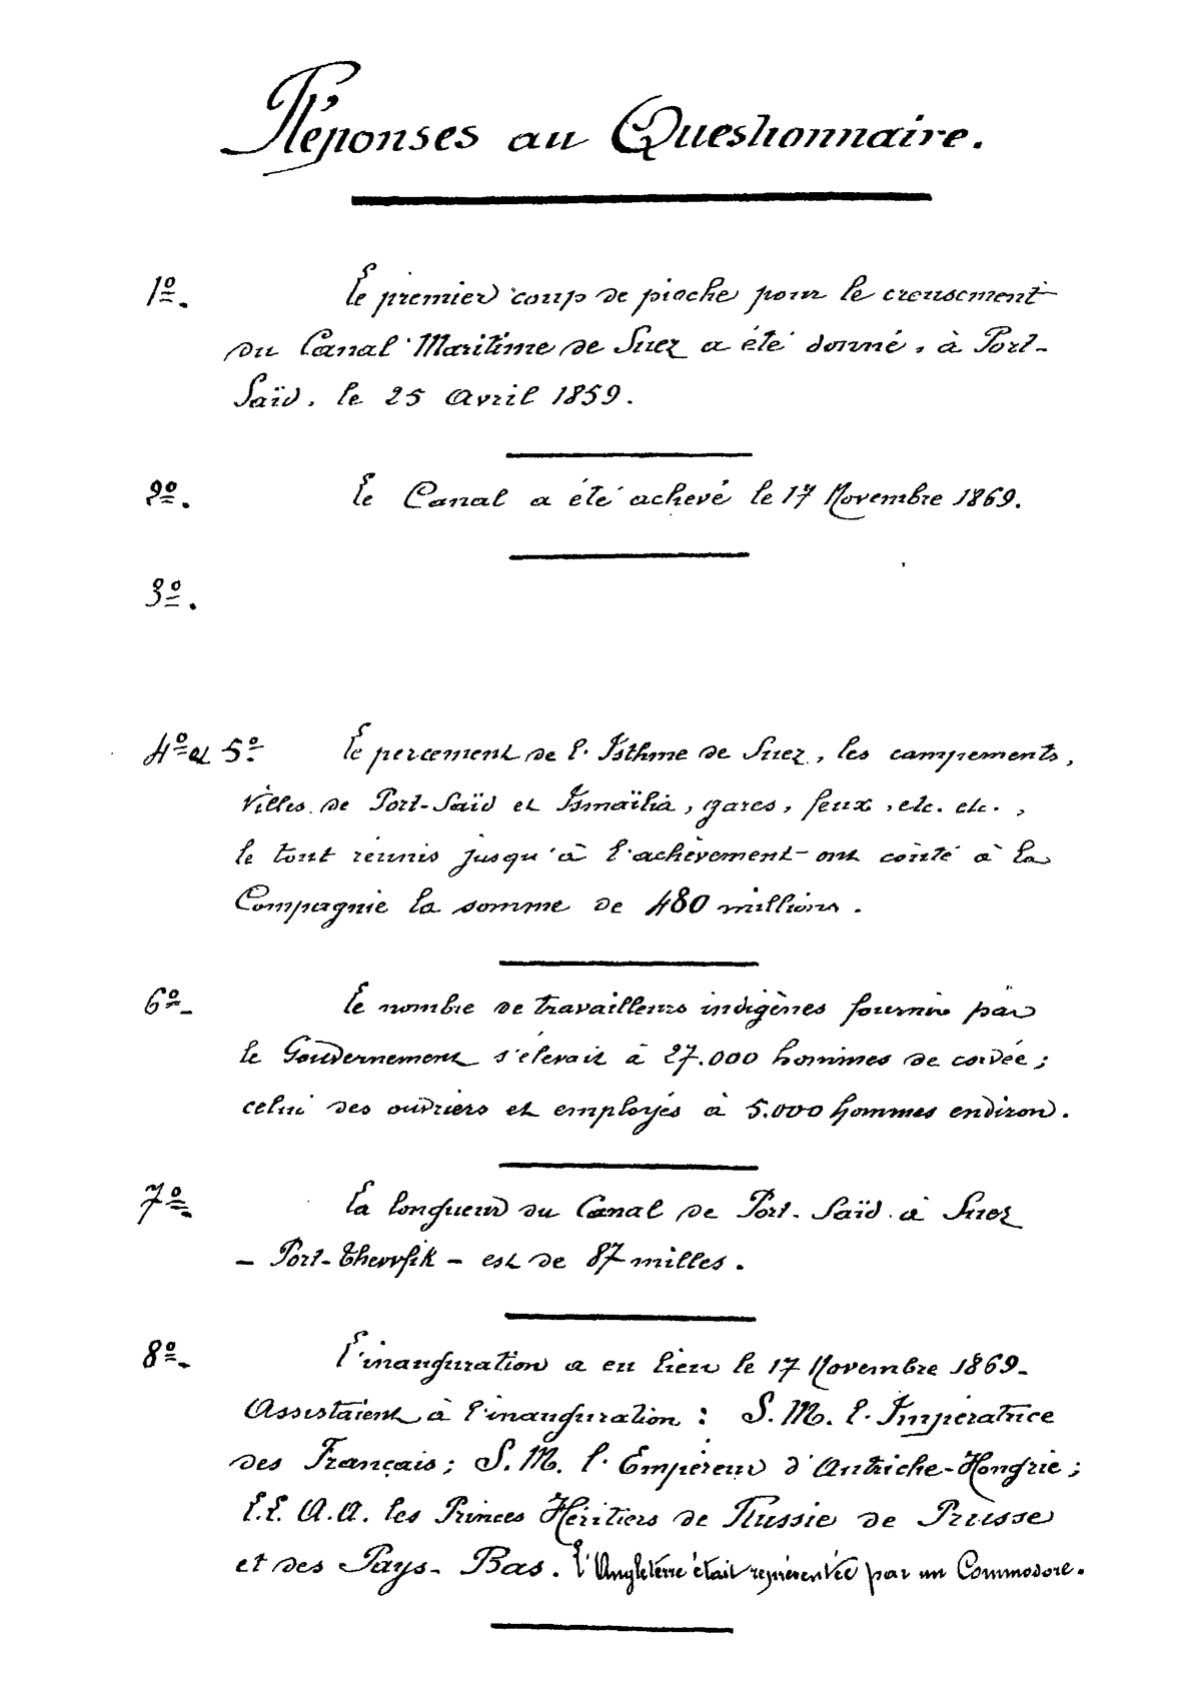 Réponses au Questionnaire.
1º. Le premier coup de pioche pour le creusement
du Canal Maritime de Suez a été donné, à Port-
Saïd, le 25 Avril 1859.
2º. Le Canal a été achevé le 17 Novembre 1869.
3º.
4º et 5º. Le percement de l'Isthme de Suez, les campements,
villes de Port-Saïd et Ismaïlia, gares, feux, etc. etc.,
le tout réunis jusqu'à l'achèvement ont coûté à la
Compagnie la somme de 480 millions.
6º- Le nombre de travailleurs indigènes fournis par
le Gouvernement s'élevait à 27.000 hommes de corvée;
celui des ouvriers et employés à 5.000 hommes environ.
7º. La longueur du Canal de Port-Saïd à Suez
- Port-Thewfik - est de 87 milles.
8º- L'inauguration a eu lieu le 17 Novembre 1869-
Assistaient à l'inauguration : S.M. l'Impératrice
des Français; S.M. l'Empereur d'Autriche-Hongrie;
L.L. A.A. les Princes Héritiers de Russie de Prusse
et des Pays-Bas. L'Angleterre était représentée par un Commodore.